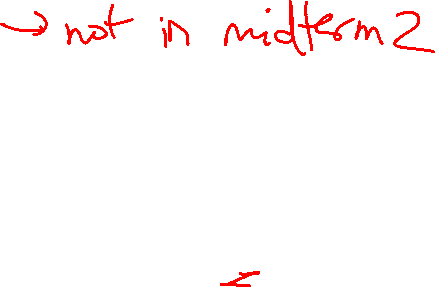 → not in midterm 2